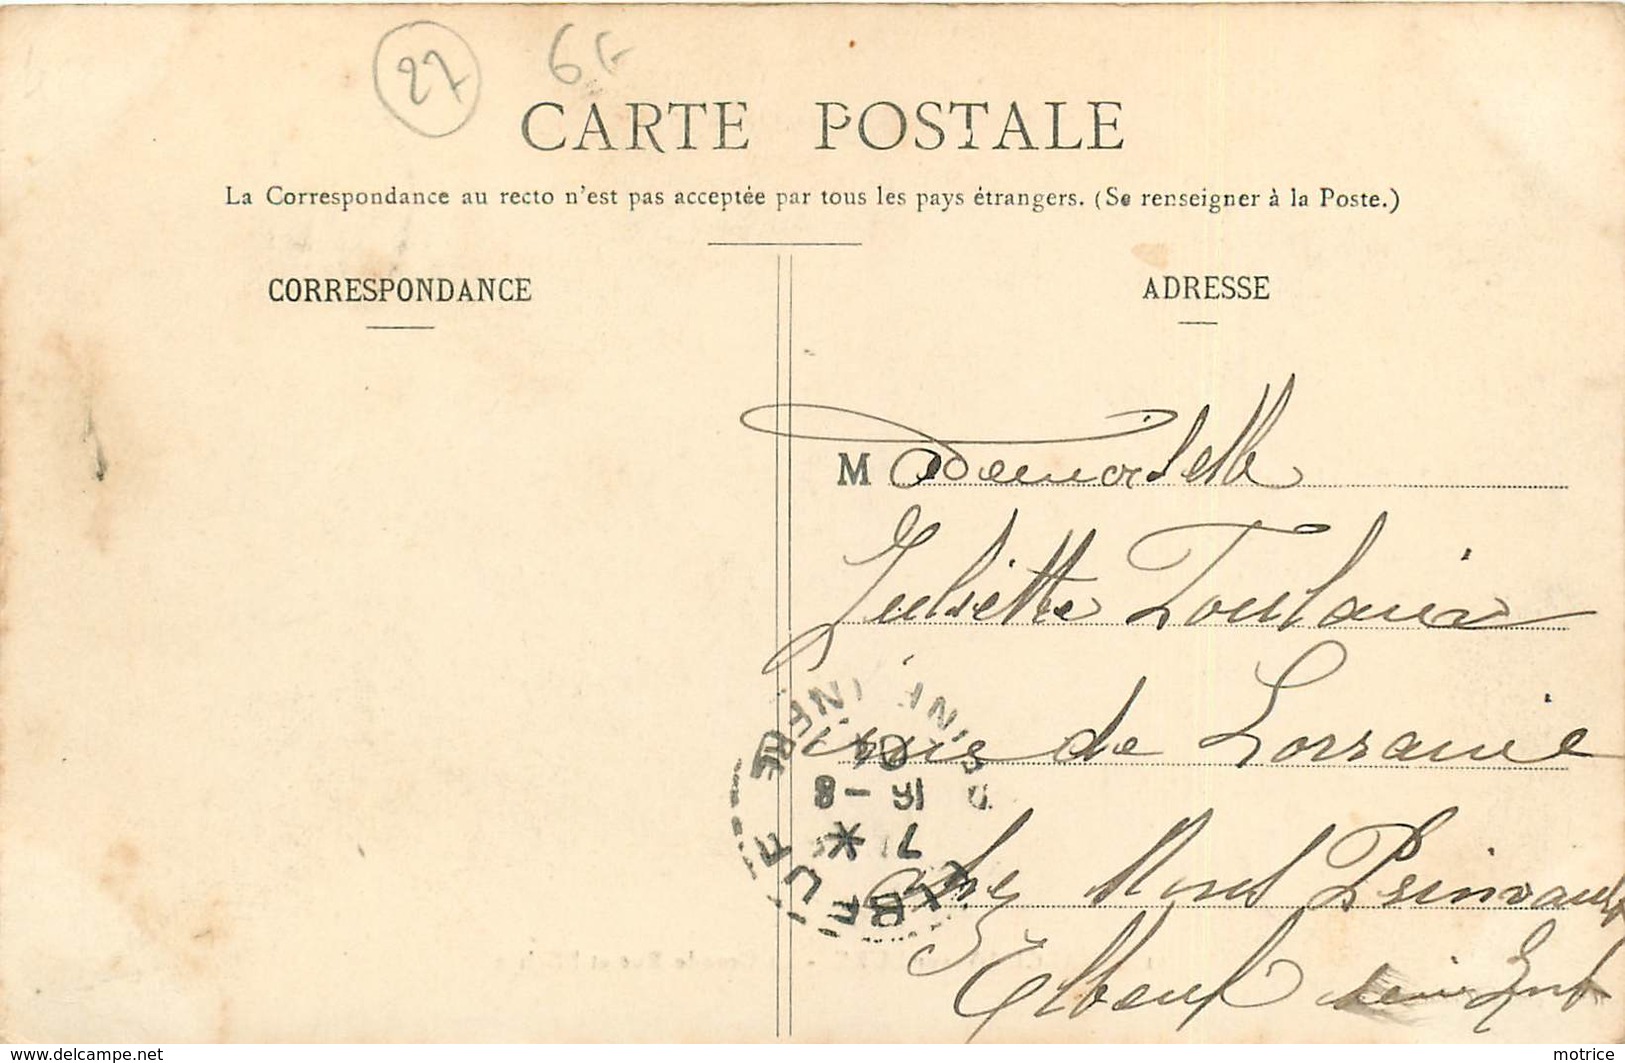 27 6F
CARTE POSTALE
La Correspondance au recto n'est pas acceptée par tous les pays étrangers. (Se renseigner à la Poste.)
CORRESPONDANCE
ADRESSE
Mademoiselle
Juliette Toulain
rue de Lorraine
chez Prinvault
Elbeuf Seine Inf
ELBEUF
SEINE INFRE
8 - 18
7
delcampe.net
motrice